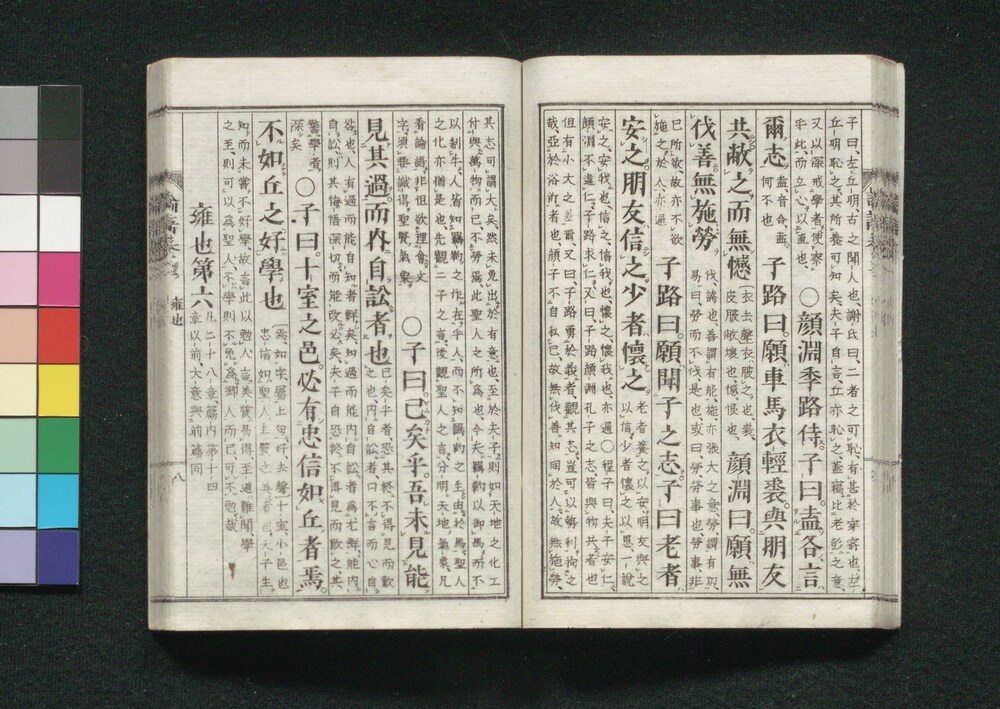 子曰、左丘明古之聞人也、謝氏曰、二者之可恥、有甚於穿窬也、左
丘明恥之、其所養可知矣、夫子自言丘亦恥之、蓋竊比老彭之意、
又以深戒學者、使察
乎此、而立心以直也、
○顏淵季路侍。子曰。盍各言
爾志
盍、音合
盍、何不也
子路曰。願車馬衣輕裘。與朋友
共。敝之而無憾
衣去聲○衣、服之也、裘、
皮服、敝壞也、憾、恨也、
顏淵曰。願無
伐善。無施勞
伐、誇也、善謂有能、施、亦張大之意、勞、謂有功、
易曰、勞而不伐是也、或曰、勞、勞事也、勞事、非
己所欲、故亦不欲
施之於人、亦通
子路曰。願聞子之志。子曰。老者
安之。朋友信之。少者懷之
老者養之以安、朋友與之
以信、少者懷之以恩、一說
安之、安我也、信之、信我也、懷之、懷我也、亦通○程子曰、夫子安仁、
顏淵不違仁、子路求仁、又曰、子路顏淵孔子之志、皆與物共者也
但有小大之差爾、又曰、子路勇於義者、觀其志、豈可以勢利拘之
哉、亞於浴沂者也、顏子不自私己、故無伐善、知同於人、故無施勞、
其志可謂大矣、然未免出於有意也、至於夫子、則如天地之化工
付與萬物、而己不勞焉、此聖人之所爲也、今夫羈靮以御馬、而不
以制牛、人皆知羈靮之作在乎人、而不知羈靮之生由於馬、聖人
之化亦猶是也、先觀二子之言、後觀聖人之言、分明天地氣象、凡
看論語、非但欲理會文
字、須要識得聖賢氣象
○子曰。已矣乎。吾未見能
見其過。而內自訟者也
已矣乎者、恐其終不得見而歎
之也、內自訟者、口不言而心自
咎也、人有過而能自知者鮮矣、知過而能內自訟者爲尤鮮、能內
自訟、則其悔悟深切、而能改必矣、夫子自恐終不得見而歎之、其
警學者
深矣
○子曰。十室之邑。必有忠信如丘者焉。
不如丘之好學也
焉、如字、屬上句、好去聲○十室、小邑也
忠信如聖人、生質之美者也、夫子生
知、而未嘗不好學、故言此以勉人、言美質易得、至道難聞、學
之至、則可以爲聖人、不學、則不免爲鄕人而已、可不勉哉
雍也第六
凡二十八章、篇內第十四
章以前、大意與前篇同
雍也
八